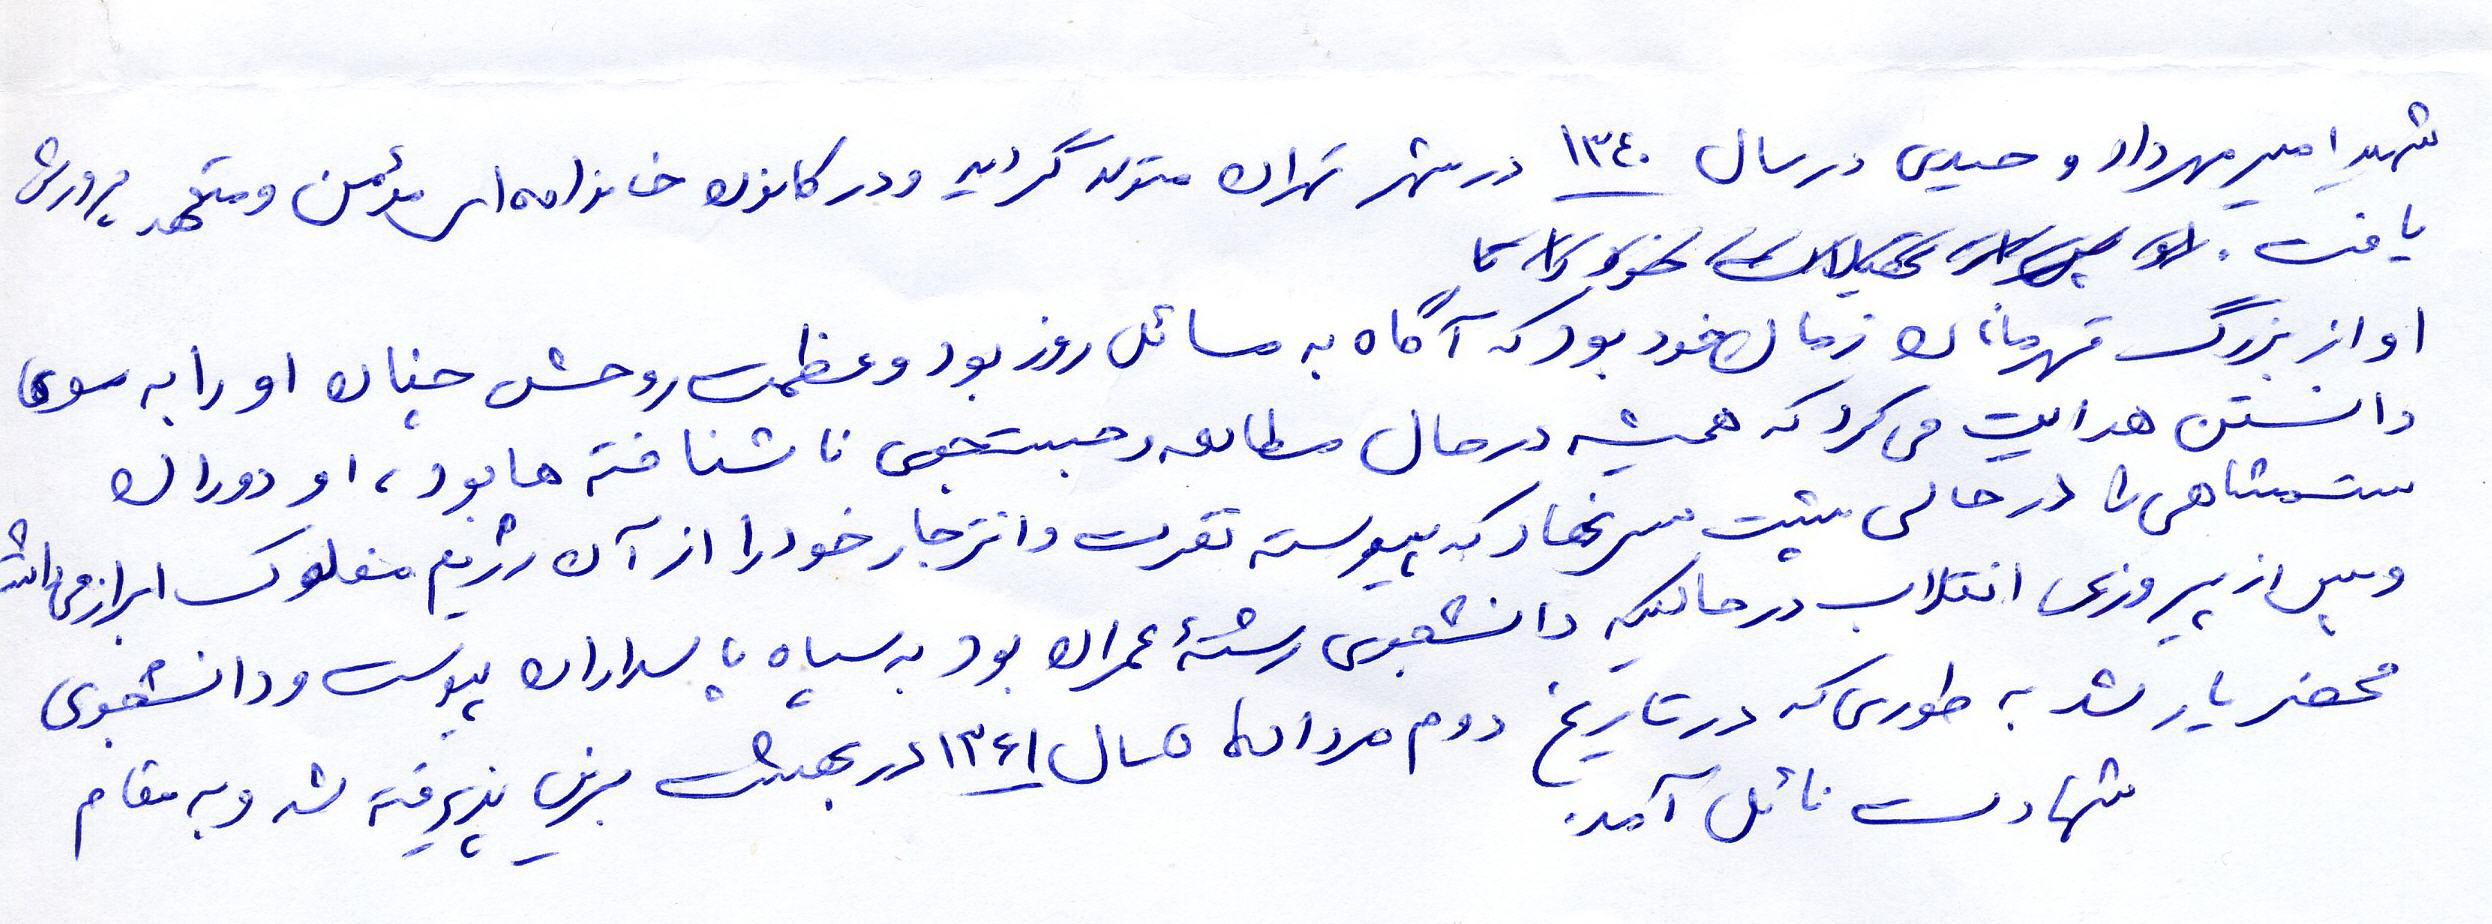 شهید امیر مهرداد وحیدی در سال ۱۳٤۰ در شهر تهران متولد گردید و در کانون خانواده‌ای مؤمن و متعهد پرورش
یافت.
او از بزرگ قهرمانان زمان خود بود که آگاه به مسائل روز بود و عظمت روحش چنان او را به سوی
دانستن هدایت می‌کرد که همیشه در حال مطالعه و جستجوی ناشناخته ها بود، او دوران
ستمشاهی را در حالی پشت سر نهاد که پیوسته نفرت و انزجار خود را از آن رژیم مفلوک ابراز می‌داشت
و پس از پیروزی انقلاب در حالیکه دانشجوی رشتهٔ عمران بود به سپاه پاسداران پیوست و دانشجوی
محضر یار شد به طوری که در تاریخ دوم مرداد ماه سال ۱۳۶۱ در بهشت برین پذیرفته شد و به مقام
شهادت نائل آمد.